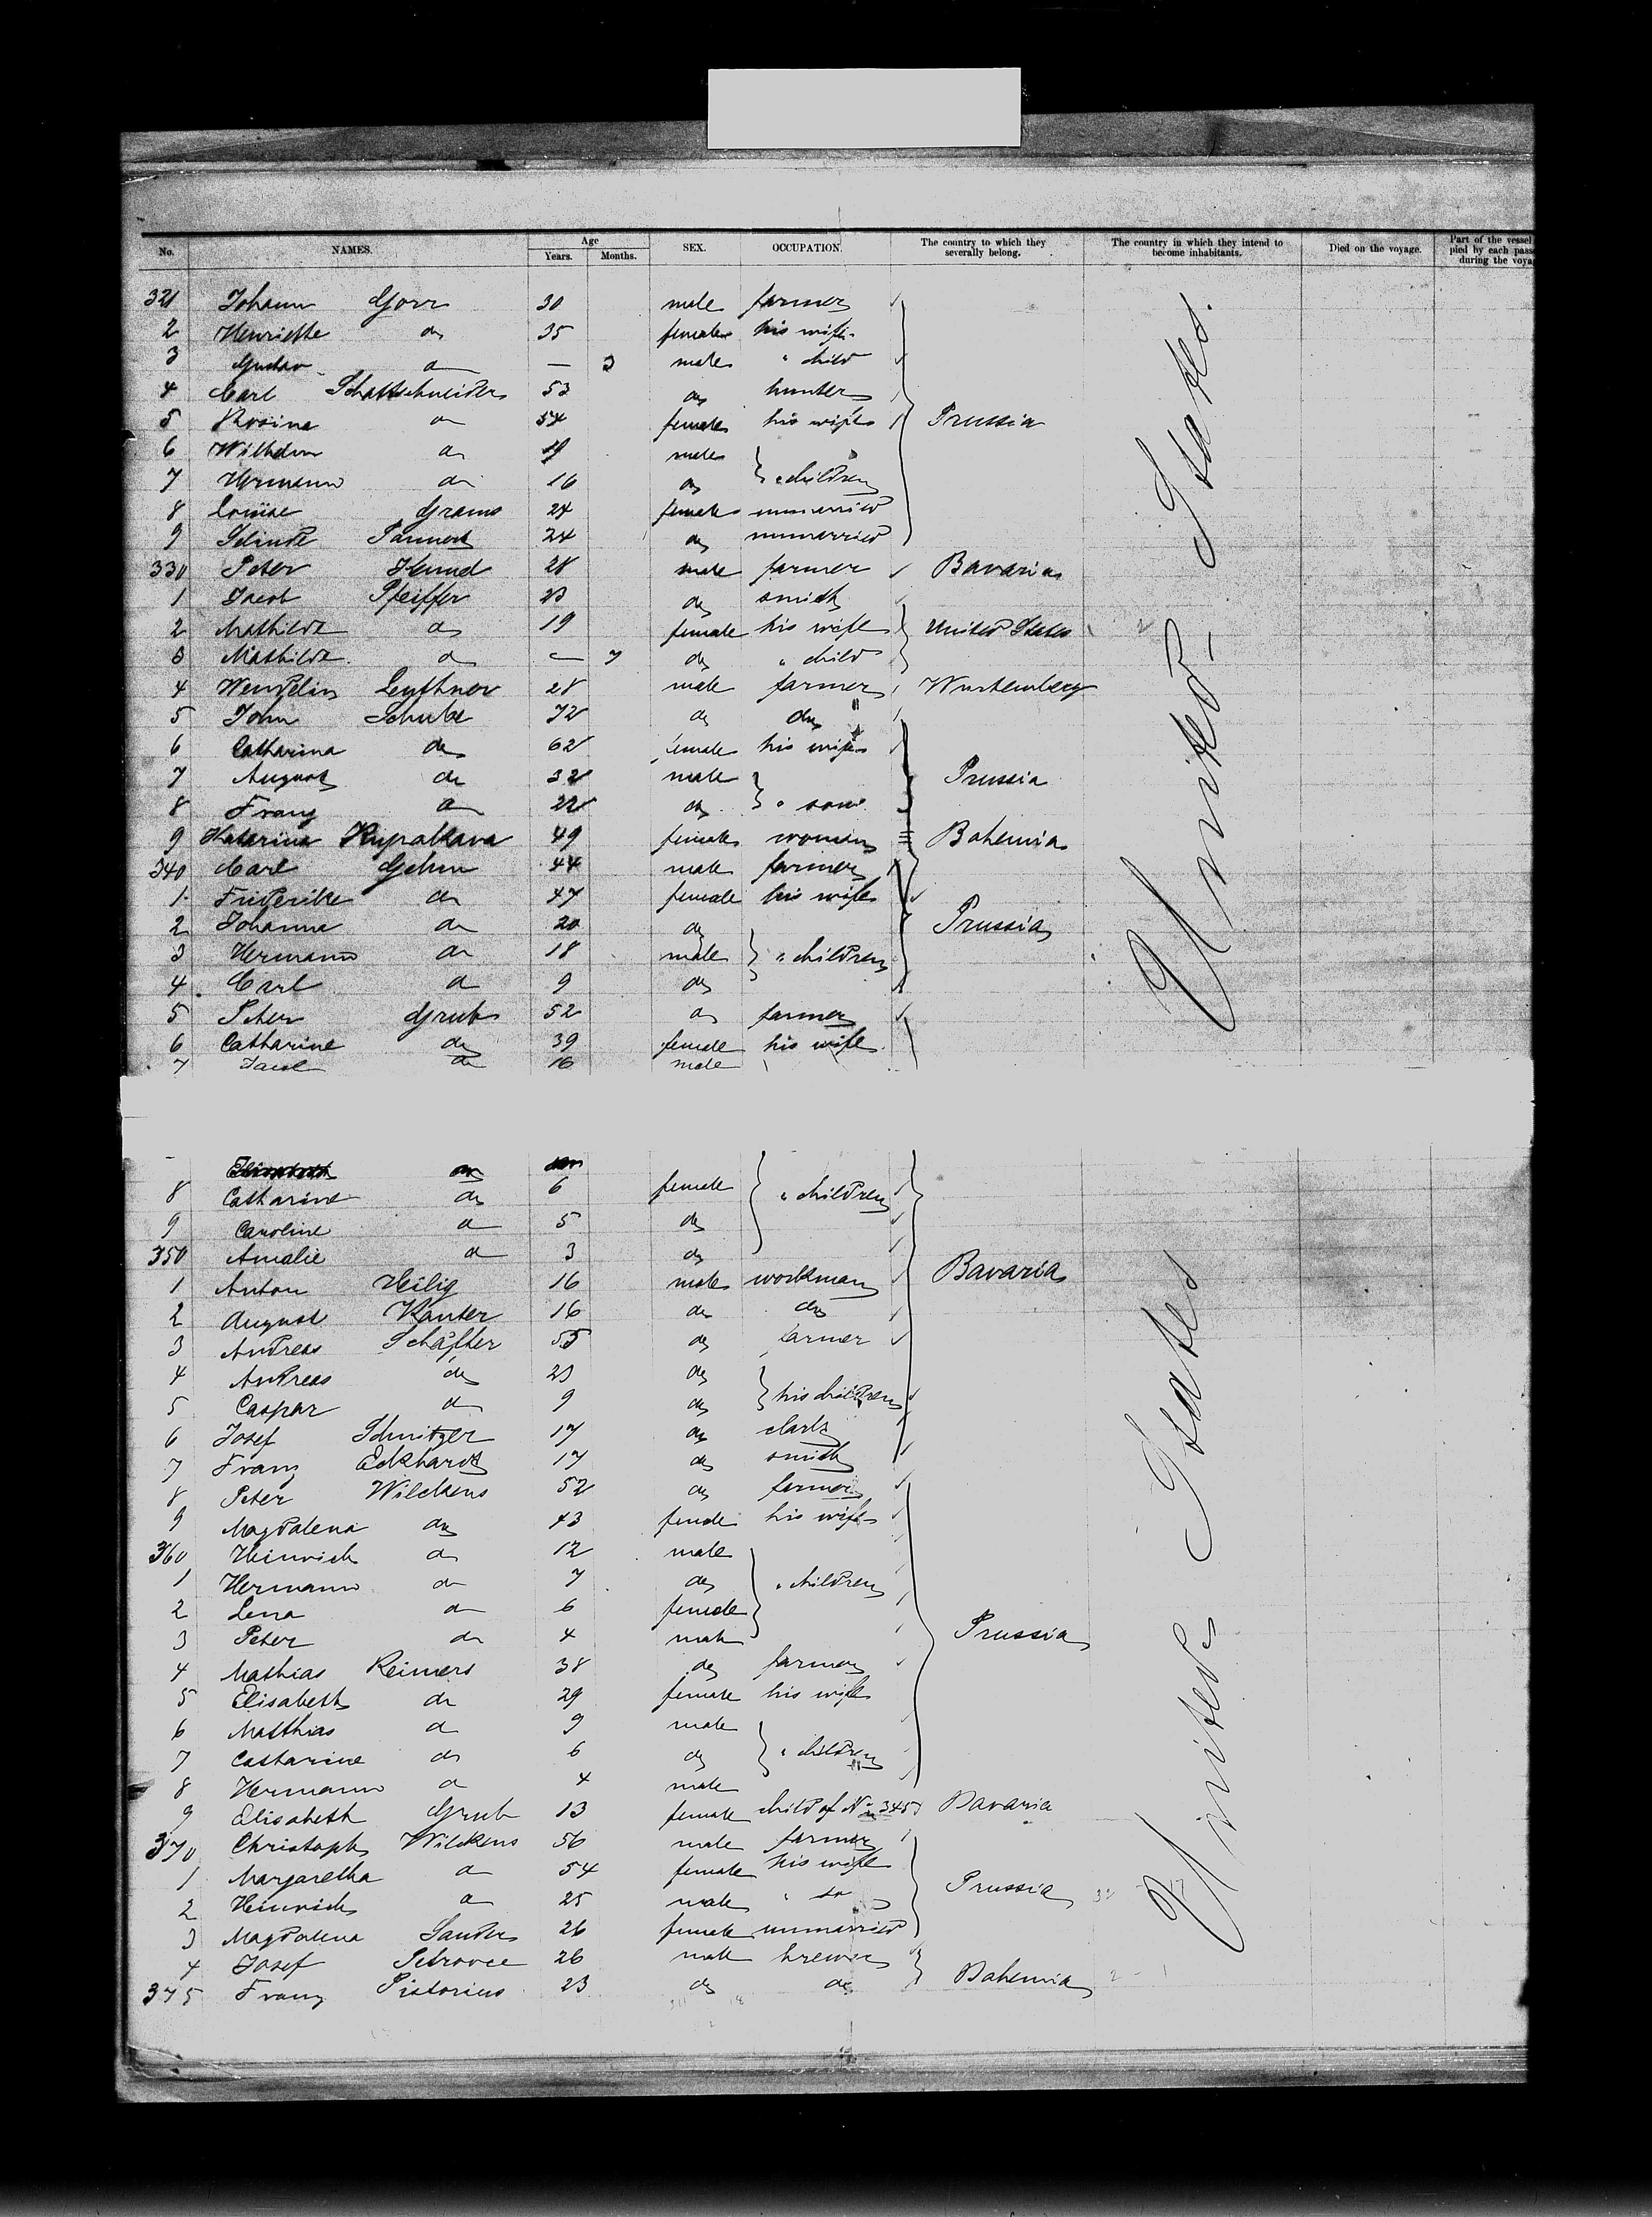 No. NAMES. Age Years. Months. SEX. OCCUPATION. The country to which they severally belong. The country in which they intend to become inhabitants. Died on the voyage. Part of the vessel pied by each pass during the voya
321 Johann Gorr 30 male farmer
2 Henriette do 35 female his wife
3 Gustav do — 3 male " child
4 Carl Schattschneider 53 do hunter
5 Rosine do 54 female his wife Prussia
6 Wilhelm do 19 male
7 Hermann do 16 do " children
8 Louise Grams 24 female unmarried
9 24 do unmarried
330 Peter Hund 28 male farmer Bavaria
1 Jacob Pfeiffer 23 do smith
2 Mathilde do 19 female his wife United States
3 Mathilde do — 7 do " child
4 Wendelin Leythner 28 male farmer Wurtemberg
5 John Schulz 72 do do
6 Catharina do 62 female his wife
7 August do 32 male Prussia
8 Franz do 22 do " sons
9 Katarina Kupalkava 49 female woman Bohemia
340 Carl Gehm 44 male farmer
1 Friderike do 47 female his wife
2 Johanna do 20 do Prussia
3 Hermann do 18 male " children
4 Carl do 9 do
5 Peter Grub 52 do farmer
6 Catharine do 39 female his wife
7 Jacob do 16 male
United States.
Elisabeth do
8 Catharine do 6 female " children
9 Caroline do 5 do
350 Amalie do 3 do
1 Anton Heilig 16 male workman Bavaria
2 August Kanter 16 do do
3 Andreas Schäfter 55 do farmer
4 Andreas do 23 do
5 Caspar do 9 do his children
6 Josef Schnitzer 17 do clark
7 Franz Eckhardt 17 do smith
8 Peter Wilckens 52 do farmer
9 Magdalena do 43 female his wife
360 Heinrich do 12 male
1 Hermann do 7 do " children
2 Lena do 6 female
3 Peter do 4 male Prussia
4 Mathias Reimers 38 do farmer
5 Elisabeth do 29 female his wife
6 Matthias do 9 male
7 Catharine do 6 do " children
8 Hermann do 4 male
9 Elisabeth Grub 13 female child of No 345 Bavaria
370 Christoph Wilckens 56 male farmer
1 Margaretha do 54 female his wife
2 Heinrich do 25 male " so Prussia
3 Magdalena Sander 26 female unmarried
4 Josef 26 male brewer
375 Franz Pistorius 23 do do Bohemia
United States